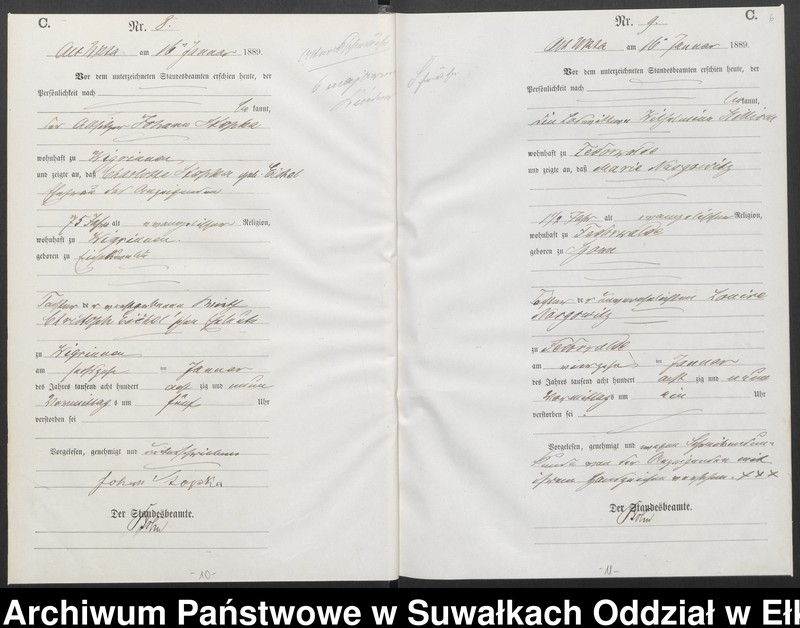 C.
Nr. 8.
Alt Ukta am 16 Januar 1889.
Vor dem unterzeichneten Standesbeamten erschien heute, der
Persönlichkeit nach
be kannt,
der Altsitzer Johann Stopka
wohnhaft zu Zigrinnen
und zeigte an, daß Charlotte Stopka geb.
Ehefrau des Anzeigenden
75 Jahr alt evangelischer Religion,
wohnhaft zu
geboren zu
Tochter der verstorbenen
Christoph
zu
am im Januar
des Jahres tausend acht hundert acht zig und neun
Vormittags um fünf Uhr
verstorben sei
Vorgelesen, genehmigt und unterschrieben
Johann Stopka
Der Standesbeamte.
Böhm
- 10 -
C.
Nr. 9.
Alt Ukta am 16 Januar 1889.
Vor dem unterzeichneten Standesbeamten erschien heute, der
Persönlichkeit nach
be kannt,
Wilhelmine
wohnhaft zu Fedorwalde
und zeigte an, daß Marie Nargowitz
1/2 Jahr alt evangelischer Religion,
wohnhaft zu Fedorwalde
geboren zu
Tochter der unverehelichten Louise
Nargowitz
zu Fedorwalde
am vierzehn im Januar
des Jahres tausend acht hundert acht zig und neun
Vormittags um ein Uhr
verstorben sei.
Vorgelesen, genehmigt und wegen Schreibensun-
kunde von der Anzeigenden mit
ihrem Handzeichen versehen. + + +
Der Standesbeamte.
Böhm
- 11 -
Archiwum Państwowe w Suwałkach Oddział w Ełk